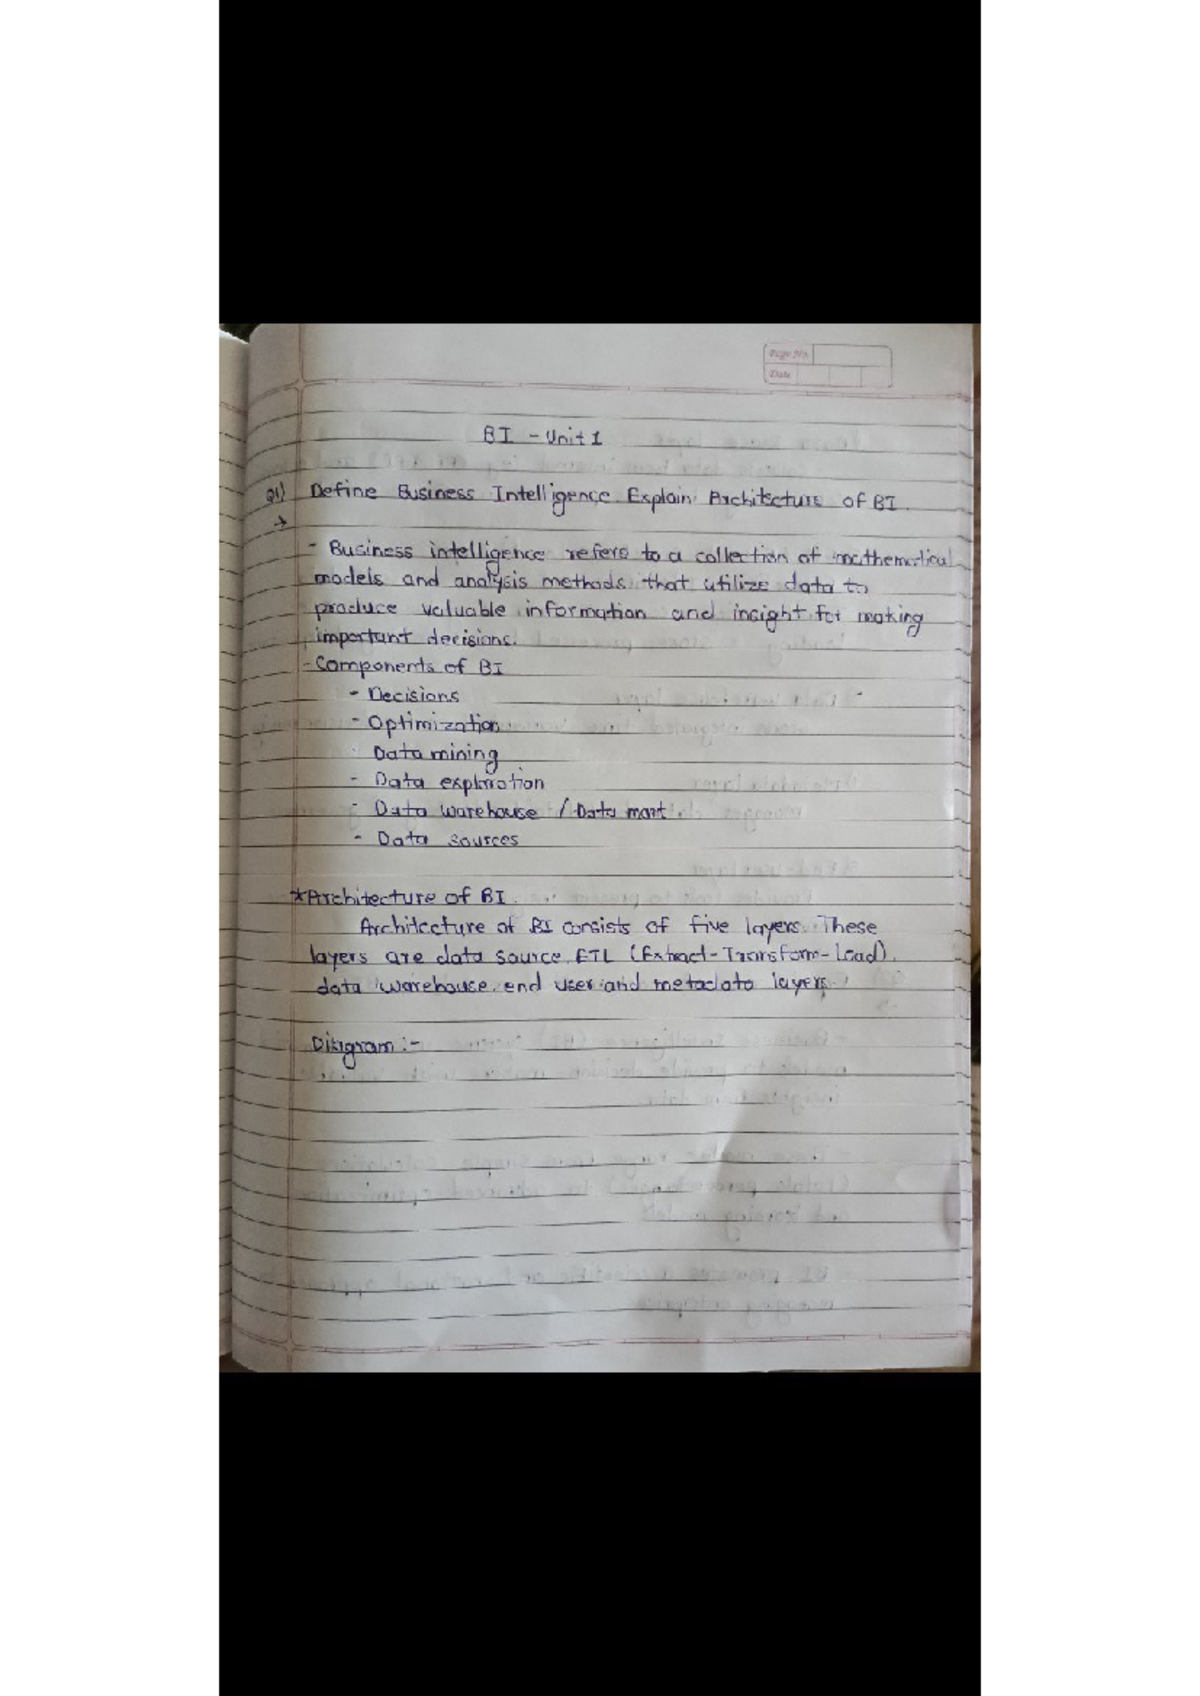 Page No.
Date
BI - Unit 1
Q1) Define Business Intelligence Explain Architecture of BI.
→
- Business intelligence refers to a collection of mathematical
models and analysis methods that utilize data to
produce valuable information and insight for making
important decisions.
- Components of BI
- Decisions
- Optimization
- Data mining
- Data exploration
- Data warehouse / Data mart
- Data sources
*Architecture of BI.
Architecture of BI consists of five layers. These
layers are data source, ETL (Extract-Transform-Load),
data warehouse, end user and metadata layers.
Diagram :-